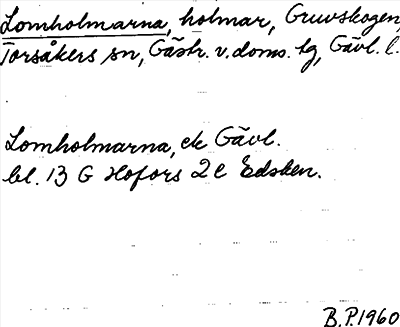 Lomholmarna, holmar, Gruvskogen,
Torsåkers sn, Gästr. v. doms. tg, Gävl. l.
Lomholmarna, ek Gävl.
bl. 13 G Hofors 2 e Edsken.
B.P. 1960